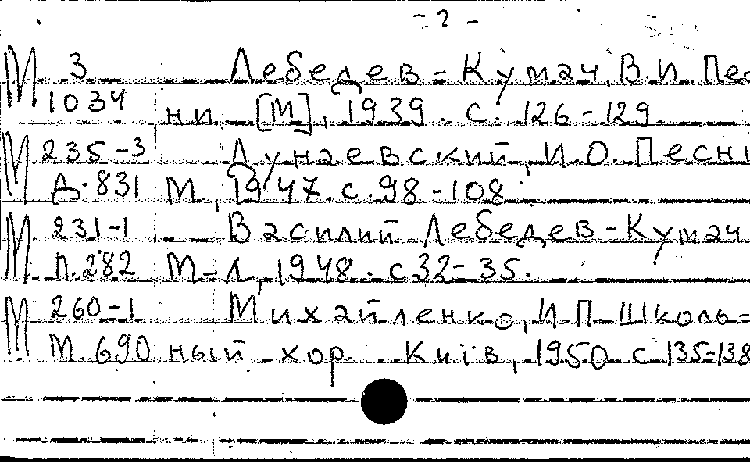 - 2 -
М 3 Лебедев-Кумач В.И. Пес
1034 ни [М], 1939. с. 126-129
М 235-3 Дунаевский, И.О. Песн
Д.831 М, 1947. с. 98-108
М 231-1 Василий Лебедев-Кумач
Л.282 М-Л, 1948. с 32-35.
М 260-1 Михайленко, И.П. Школь-
М.690 ный хор. Київ, 1950 с 135-138